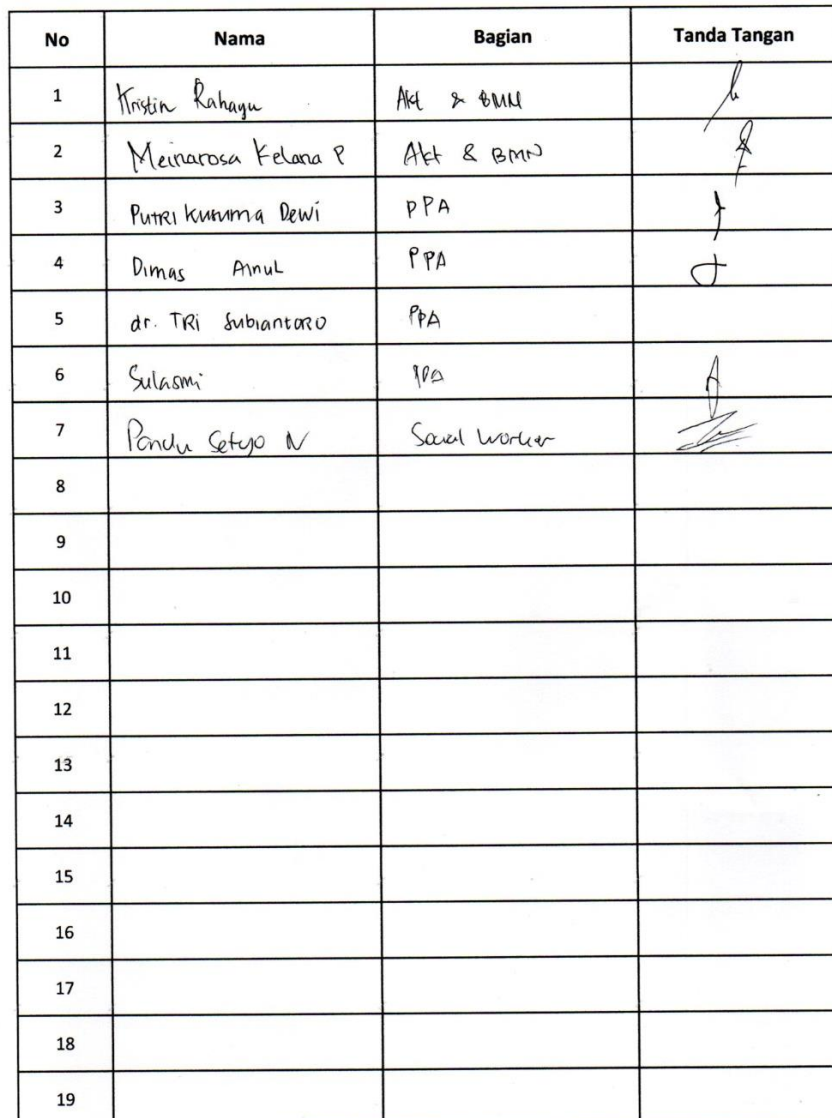 No Nama Bagian Tanda Tangan
1 Kristin Rahayu Akt & BMN
2 Meinarosa Kelana P Akt & BMN
3 PUTRI KUSUMA Dewi PPA
4 Dimas AinuL PPA
5 dr. TRI Subiantoro PPA
6 Sulasmi PPA
7 Pandu Setyo N Social Worker
8
9
10
11
12
13
14
15
16
17
18
19